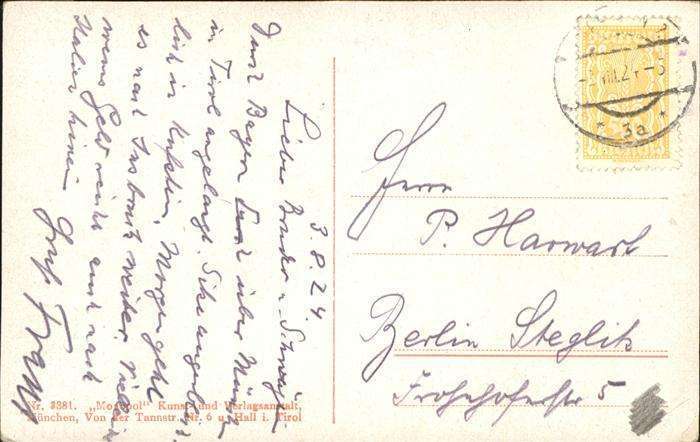 3.8.24
Lieber Bruder u. Schwägerin
Durch Bayern über München
in Tirol angelangt. Sitze augenblick-
lich in Kufstein, Morgen geht
es nach Insbruck weiter vielleicht
wenns Geld reicht auch nach
Italien hinein
Gruß Franz
Herrn
P. Harwart
Berlin Steglitz
Froh str 5
VIII.24-5
* 3a *
Nr. 3381. „Monopol“ Kunst- und Verlagsanstalt,
München, Von der Tannstr. Nr. 6 u. Hall i. Tirol